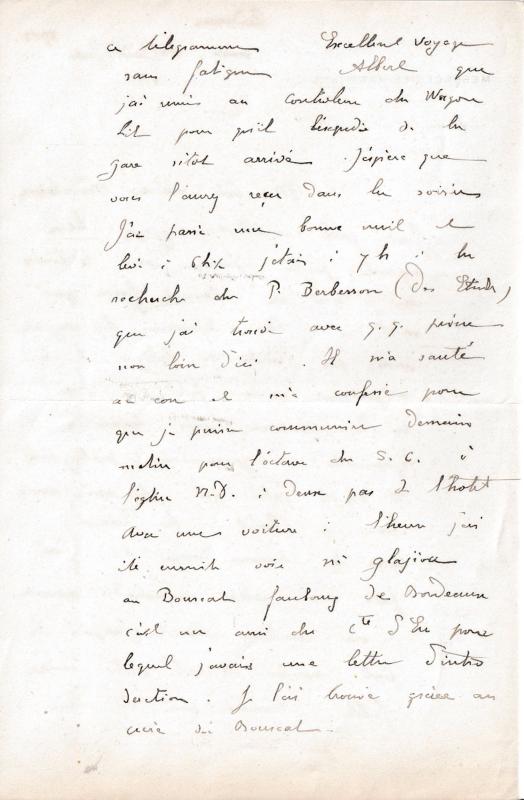 ce télégramme Excellent voyage
sans fatigue Albert que
j'ai remis au controleur du Wagon
lit pour qu'il l'expedie de la
gare sitot arrivé. J'espère que
vous l'aurez reçu dans la soirée
J'ai passé une bonne nuit et
levé à 6h½ j'étais à 7h à la
recherche du P. Berbesson (des Etudes)
que j'ai trouvé avec q.q. peine
non loin d'ici. Il m'a sauté
au cou et m'a confessé pour
que je puisse communier demain
matin pour l'octave du S. C. à
l'église N.D. à deux pas de l'hotel
Avec une voiture à l'heure j'ai
été ensuite voir
au Bouscat faubourg de Bordeaux
c'est un ami du Cte d'Eu pour
lequel j'avais une lettre d'intro
duction. Je l'ai trouvé grâce au
curé du Bouscat.